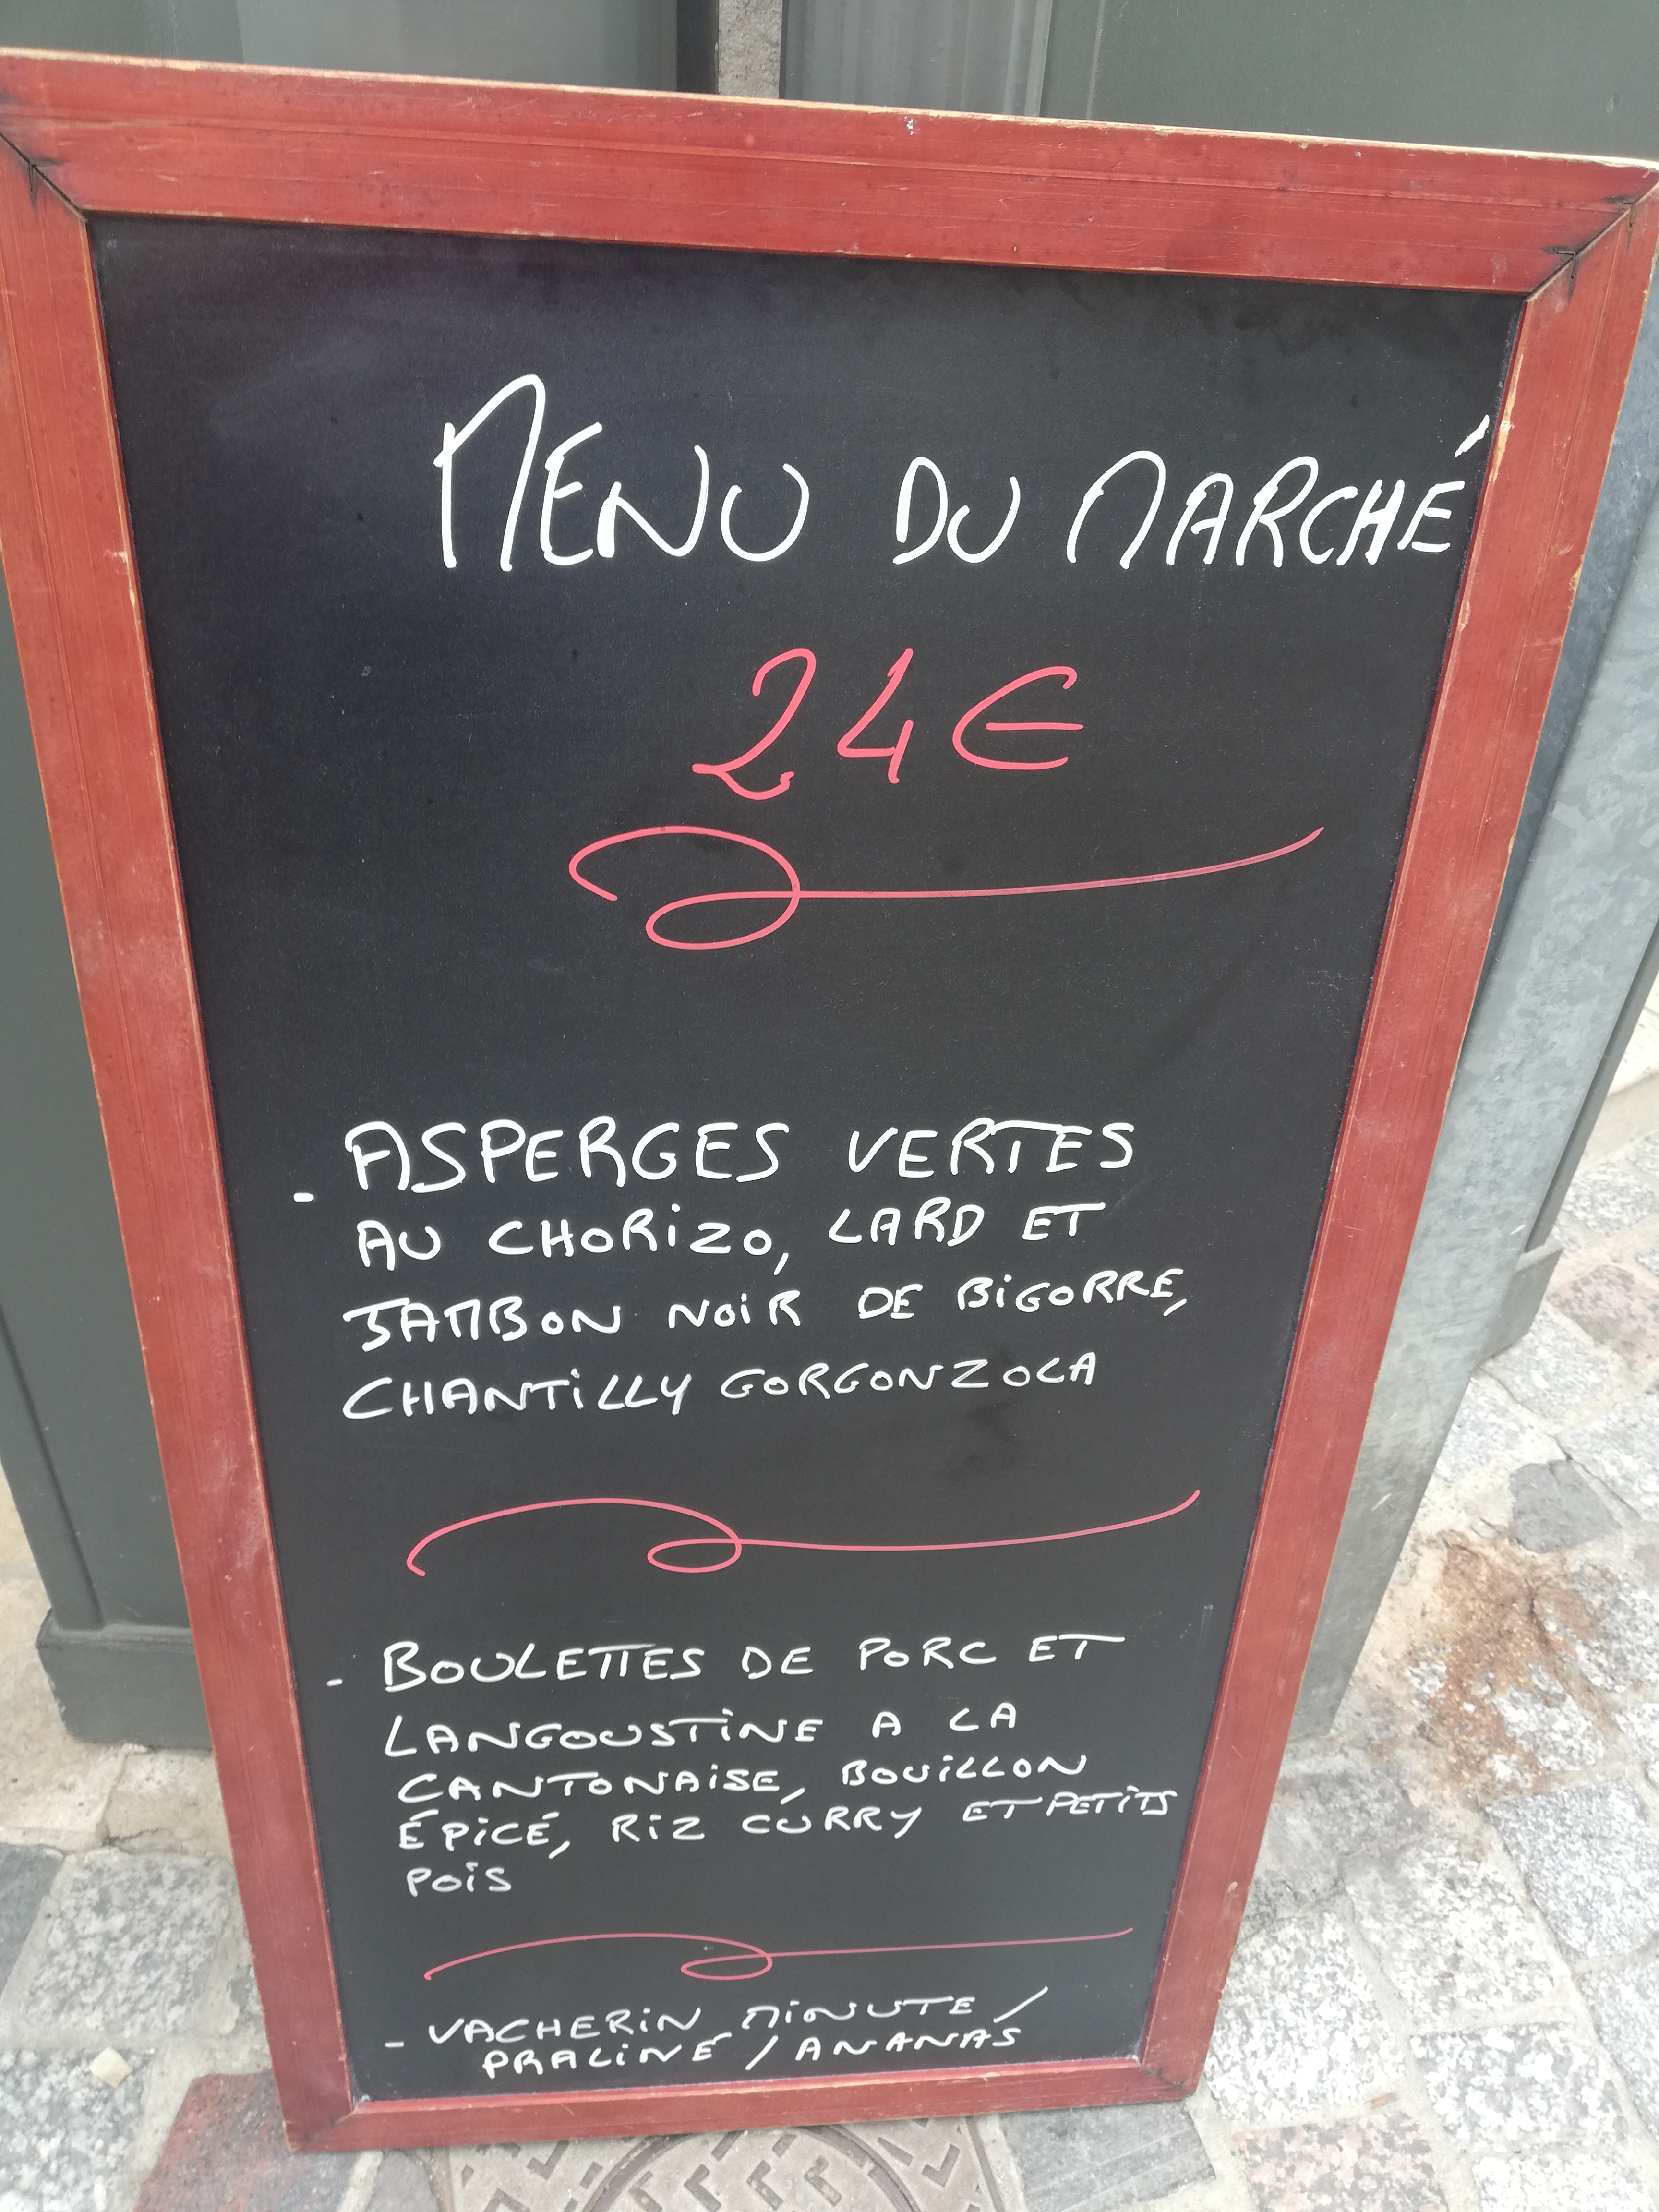 MENU DU MARCHÉ
24€
- ASPERGES VERTES
AU CHORIZO, LARD ET
JAMBON NOIR DE BIGORRE,
CHANTILLY GORGONZOLA
- BOULETTES DE PORC ET
LANGOUSTINE A LA
CANTONAISE, BOUILLON
ÉPICÉ, RIZ CURRY ET PETITS
POIS
- VACHERIN MINUTE /
PRALINÉ / ANANAS